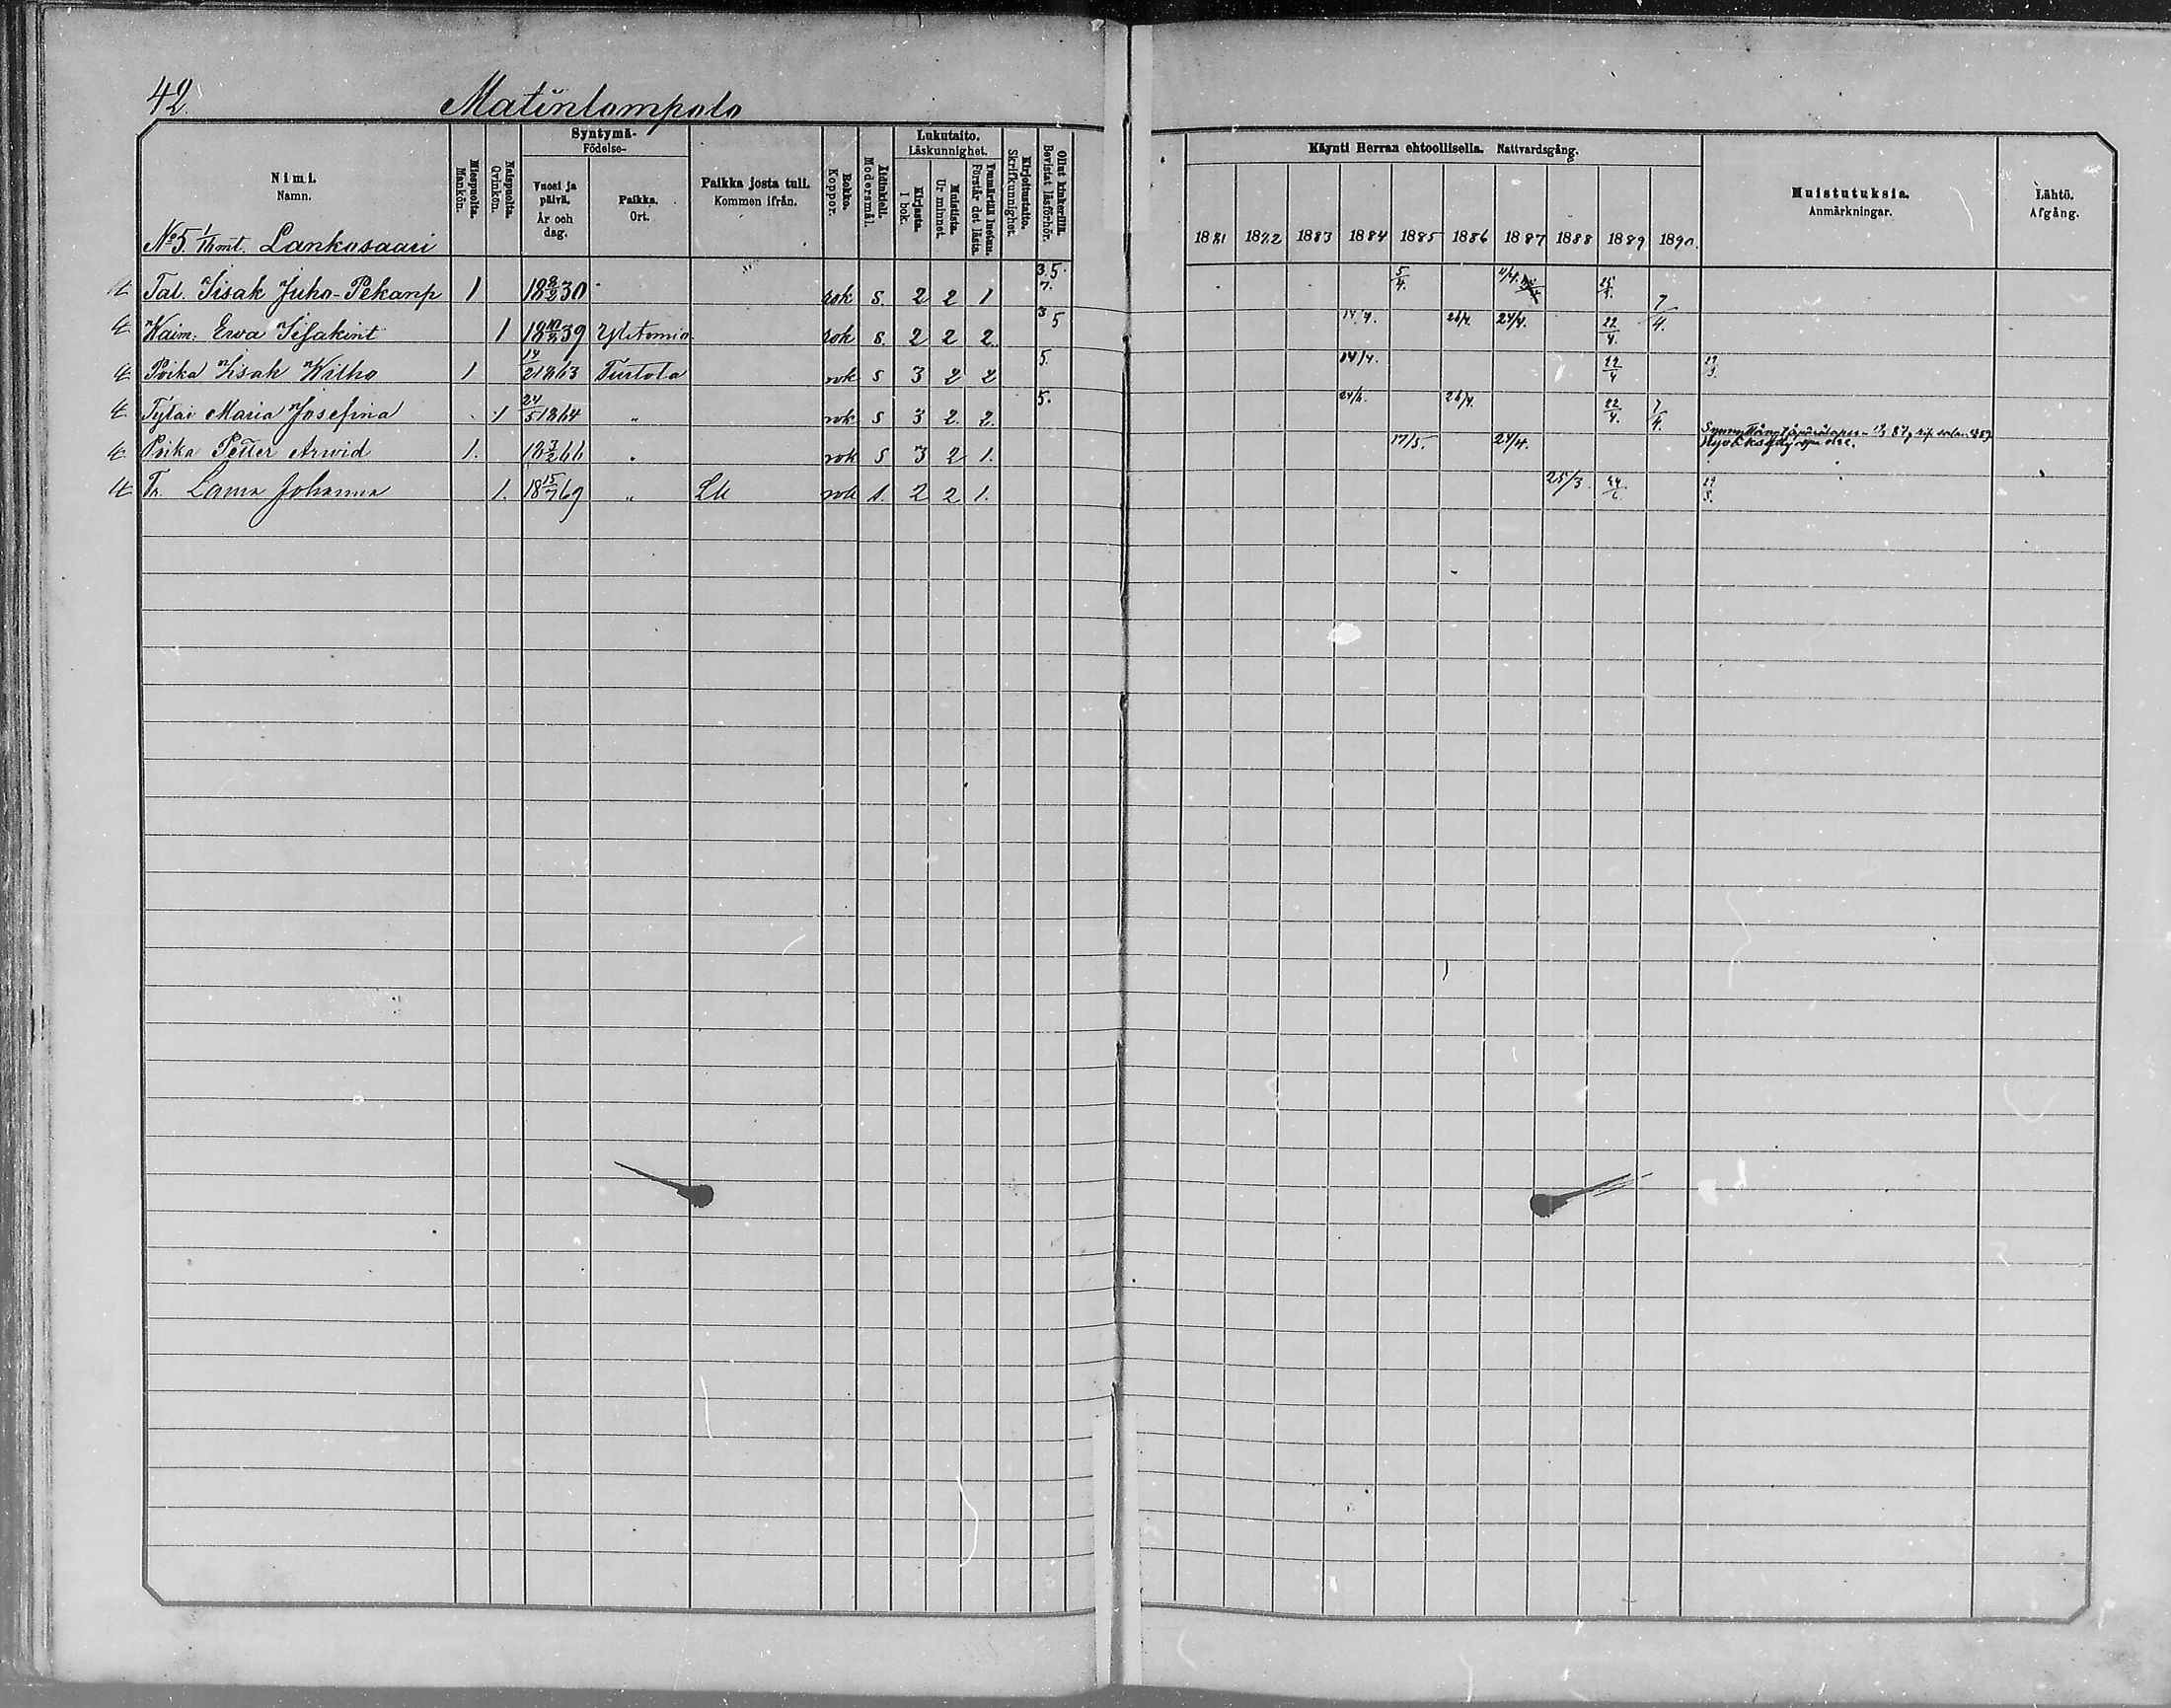 42.
Matinlompolo
Nimi.
Namn.
Miespuolta.
Mankön.
Naispuolta.
Qvinkön.
Syntymä-
Födelse-
Vuosi ja päivä.
År och dag.
Paikka.
Ort.
Paikka josta tuli.
Kommen ifrån.
Rokko.
Koppor.
Äidinkieli.
Modersmål.
Lukutaito.
Läskunnighet.
Kirjasta.
I bok.
Muistista.
Ur minnet.
Ymmärtää luetun.
Förstår det lästa.
Kirjoitustaito.
Skriffkunnighet.
Ollut kinkerillä.
Bevistat läsförhör.
Käynti Herran ehtoollisella. Nattvardsgång.
1881 1882 1883 1884 1885 1886 1887 1888 1889 1890.
Muistutuksia.
Anmärkningar.
Lähtö.
Afgång.
No 5. mt. Lankosaari
Tal. Iisak Juho-Pekanp 1 18 30 rok s. 2 2 1 3.5. 7. 5/4.
Waim. Ewa Iisakint 1 18 39 Ylitornio rok s. 2 2 2. 3 5 26/4. 24/4. 22/4. 7/4.
Poika Iisak Wilho 1 14/2 1863 Turtola rok s 3 2 2 5. 14/4. 22/4
Tytär Maria Josefina 1 24/5 1864 " rok s 3 2. 2. 5. 26/4. 22/4. 7/4.
Poika Petter Arwid 1. 18 3/2 66 " rok s 3 2 1. 17/5. 24/4.
Tr. Johanna 1. 18 15/7 69 " rok s. 2 2 1. 25/3